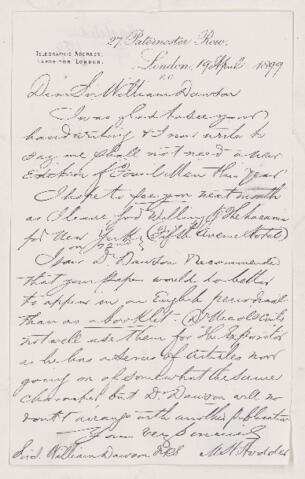 27, Paternoster Row,
TELEGRAPHIC ADDRESS,
LONDON.
London, 19 April 1899
E.C.
Dear Sir William Dawson
I was glad to see your
handwriting & I now write to
say we shall not need a new
Edition of Fossil Men this year
I hope to see you next month
as I leave for
for New York (Fifth Avenue Hotel)
Dr Dawson Recommended
that your papers would do better
to appear in an English periodical
than as a booklet.
not well use them for the Expositor
as he has a series of Articles now
going on of somewhat the same
character but Dr Dawson will no
doubt arrange with another publication
Yours very sincerely
Sir William Dawson FRS M H Hodder